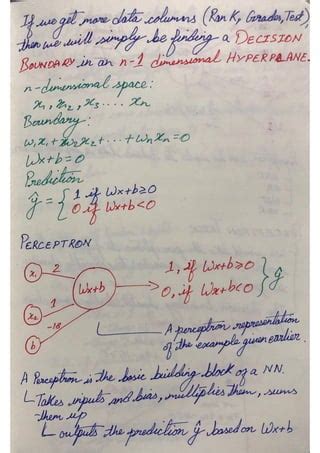 If we get more data columns (Rank, Grades, Test)
then we will simply be finding a DECISION
BOUNDARY in an n-1 dimensional HYPERPLANE.
n-dimensional space:
x₁, x₂, x₃ .... xn
Boundary:
w₁x₁ + w₂x₂ + ... + wnxn = 0
Wx+b = 0
Prediction
ŷ = { 1 if Wx+b≥0
0 if Wx+b<0
PERCEPTRON
x₁ 2
x₂ 1
b -18
Wx+b
1, if Wx+b≥0
0, if Wx+b<0 } ŷ
A perceptron representation
of the example given earlier.
A Perceptron is the basic building block of a NN.
Takes inputs and bias, multiplies them, sums
them up
outputs the prediction ŷ based on Wx+b